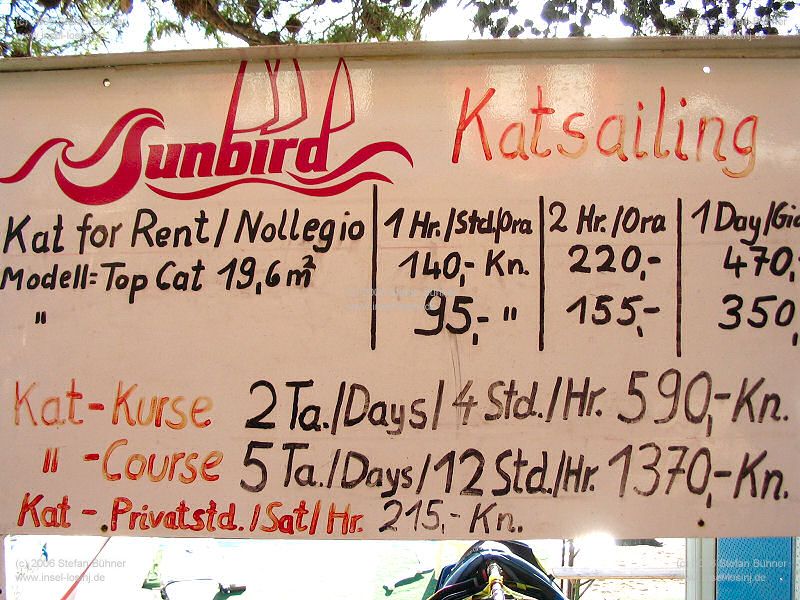 Sunbird Katsailing
Kat for Rent / Nollegio 1 Hr./Std./Ora 2 Hr./Ora 1 Day/Gio
Modell=Top Cat 19,6 m² 140,- Kn. 220,- 470,-
" 95,- " 155,- 350,
Kat-Kurse 2 Ta./Days/4 Std./Hr. 590,-Kn.
" -Course 5 Ta./Days/12 Std./Hr. 1370,-Kn.
Kat-Privatstd./Sat/Hr. 215,- Kn.
(c) 2006 Stefan Bühner (c) 2006 Stefan Bühner
www.insel-losinj.de www.insel-losinj.de